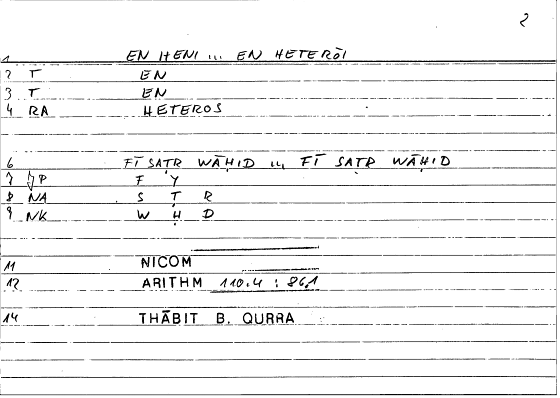 2
1 EN HENI ... EN HETERŌI
2 T EN
3 T EN
4 RA HETEROS
6 FĪ SAṬR WĀḤID ... FĪ SAṬR WĀḤID
7 P F Y
8 NA S Ṭ R
9 NK W Ḥ D
11 NICOM
12 ARITHM 110.4 : 86,1
14 THĀBIT B. QURRA